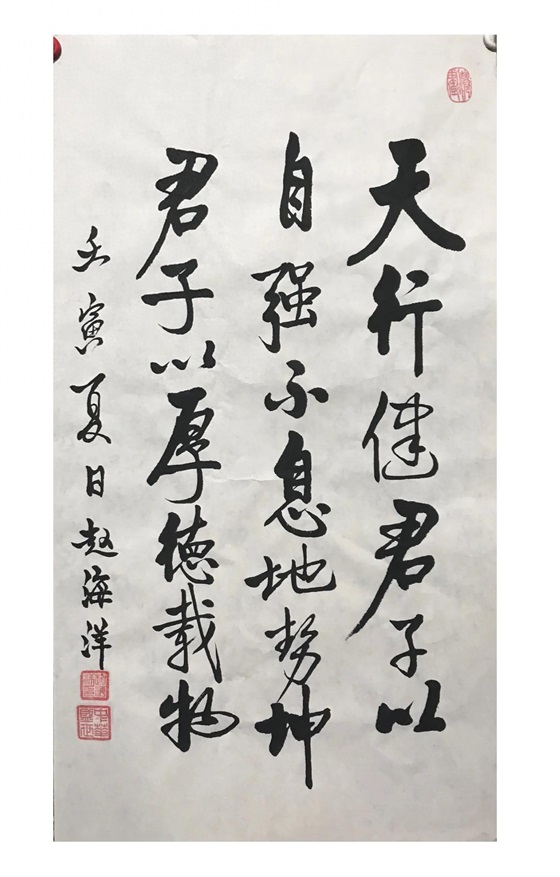 天行健君子以
自强不息地势坤
君子以厚德载物
壬寅夏日赵海洋